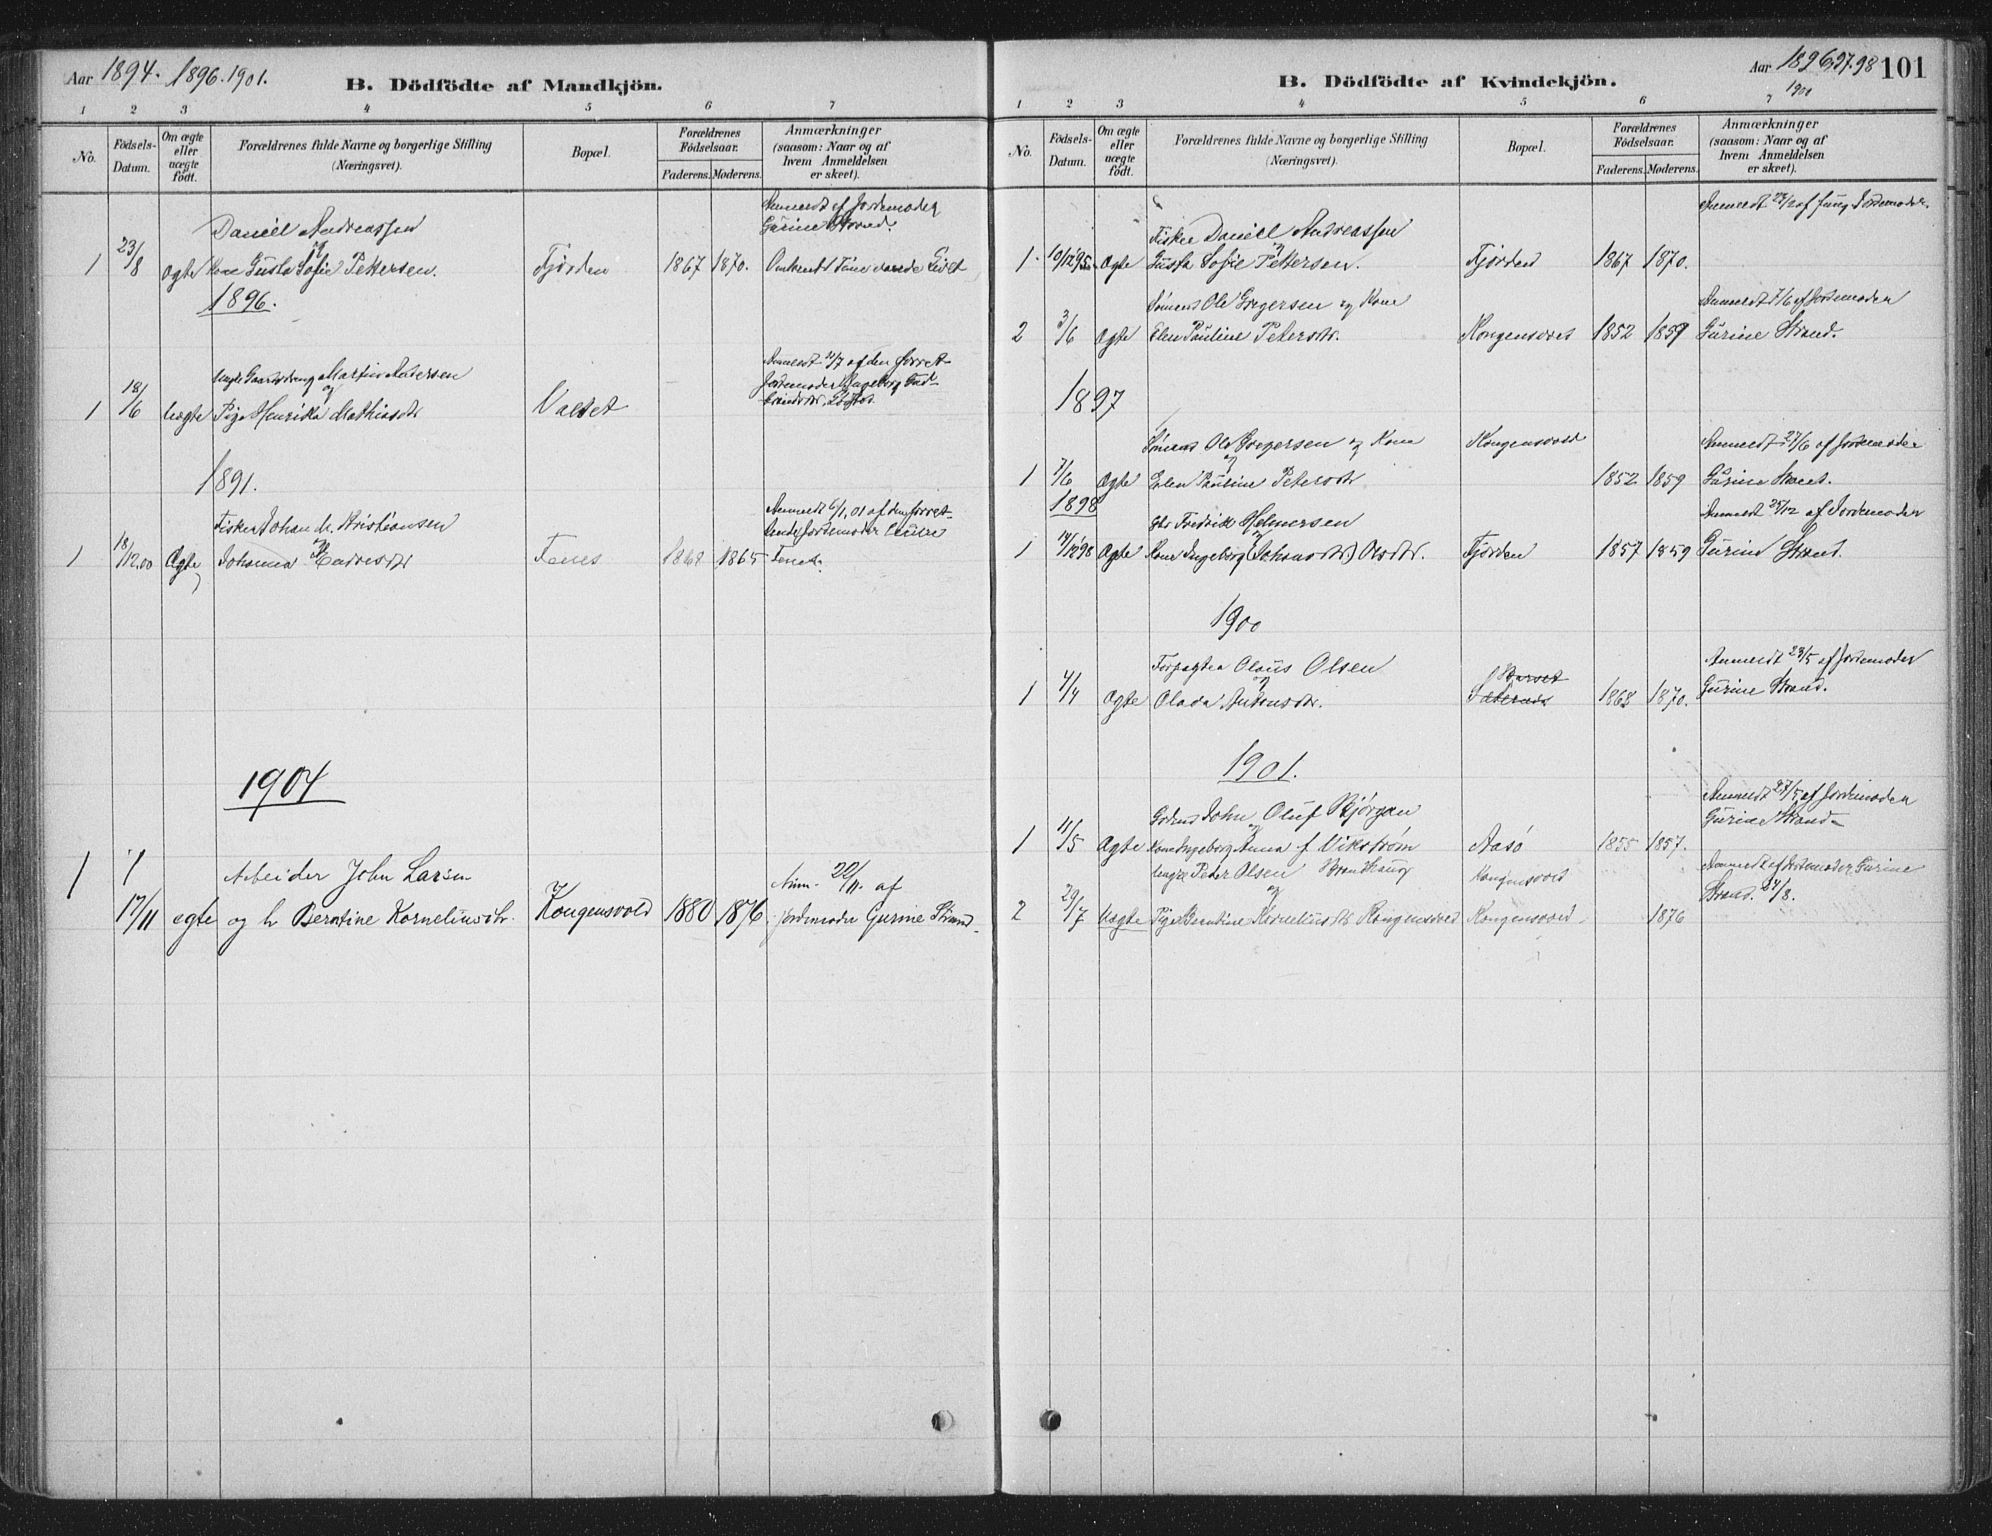 Aar 1894. 1896. 1901.
B. Dödfödte af Mandkjön.
1 2 3 4 5 6 7
No.
Födsels-Datum.
Om ægte eller uægte födt.
Forældrenes fulde Navne og borgerlige Stilling (Næringsvei).
Bopæl.
Forældrenes Födselsaar.
Faderens. Moderens.
Anmærkninger (saasom: Naar og af hvem Anmeldelsen er skeet).
Anmeldt af Jordemoder
Daniel Andreassen
Gurine Strand.
og
1 23/8 Ægte Kone Gusta Sofie Pettersen. Fjorden 1867 1870.
1896.
Anmeldt 11/7 af den forret-
Ungk. Gaardsdreng Martin
og
1 18/6 Uægte Pige Henrikka Mathiasdtr Valset
1891.
Anmeldt 6/1,01 af den forret-
Fisker Johan M. Kristiansen
og
1 18/12.00 Ægte Johanna Fenes 1868 1865
1904
1 1
Arbeider John Larsen
Anm. 22/11. af
17/11 egte og h Berntine Korneliusdtr. Kongensvold 1880 1876 jordemoder Gurine Strand.
Aar 1896,97.98 101
1900
B. Dödfödte af Kvindekjön.
1 2 3 4 5 6 7
No.
Födsels-Datum.
Om ægte eller uægte födt.
Forældrenes fulde Navne og borgerlige Stilling (Næringsvei).
Bopæl.
Forældrenes Födselsaar.
Faderens. Moderens.
Anmærkninger (saasom: Naar og af hvem Anmeldelsen er skeet).
Fisker Daniel Andreassen
og
1 10/12 95 Ægte Gusta Sofie Pettersen. Fjorden 1867 1870.
Sömand Ole Gregersen og Kone
Anmeldt 7/6 af Jordemoder
2 3/6 Ægte Elen Pauline Petersdtr. Kongensvold 1852 1859 Gurine Strand.
1897
Sömand Ole Gregersen og Kone Kongensvold Anmeldt 27/6 af Jordemoder
1 7/6 Ægte Elen Pauline Petersdtr 1852 1859 Gurine Strand.
1898
Fredrik Helmersen
Anmeldt 28/12 af Jordemoder
1 14/12 98 Ægte Kone Ingeborg (Johansdtr) Olsdtr. Fjorden 1857 1859 Gurine Strand.
1900
Forpagter Olaus Olsen
Anmeldt 23/5 af Jordemoder
og
1 4/4 Ægte Olada Antonsdtr. 1868 1870. Gurine Strand.
1901.
Anmeldt 27/5 af Jordemoder
John Oluf Bjørgan
Gurine Strand
og
1 11/5 Ægte Kone Ingeborg Anna f Vikstrøm Aasö 1855 1857.
Ungk. Peter Olsen Brandhaug Kongensvold
Anmeldt af Jordemoder Gurine
og
Strand. 24/8.
2 29/7 Uægte Pige Berntine Korneliusdtr Kongensvold Kongensvold 1876